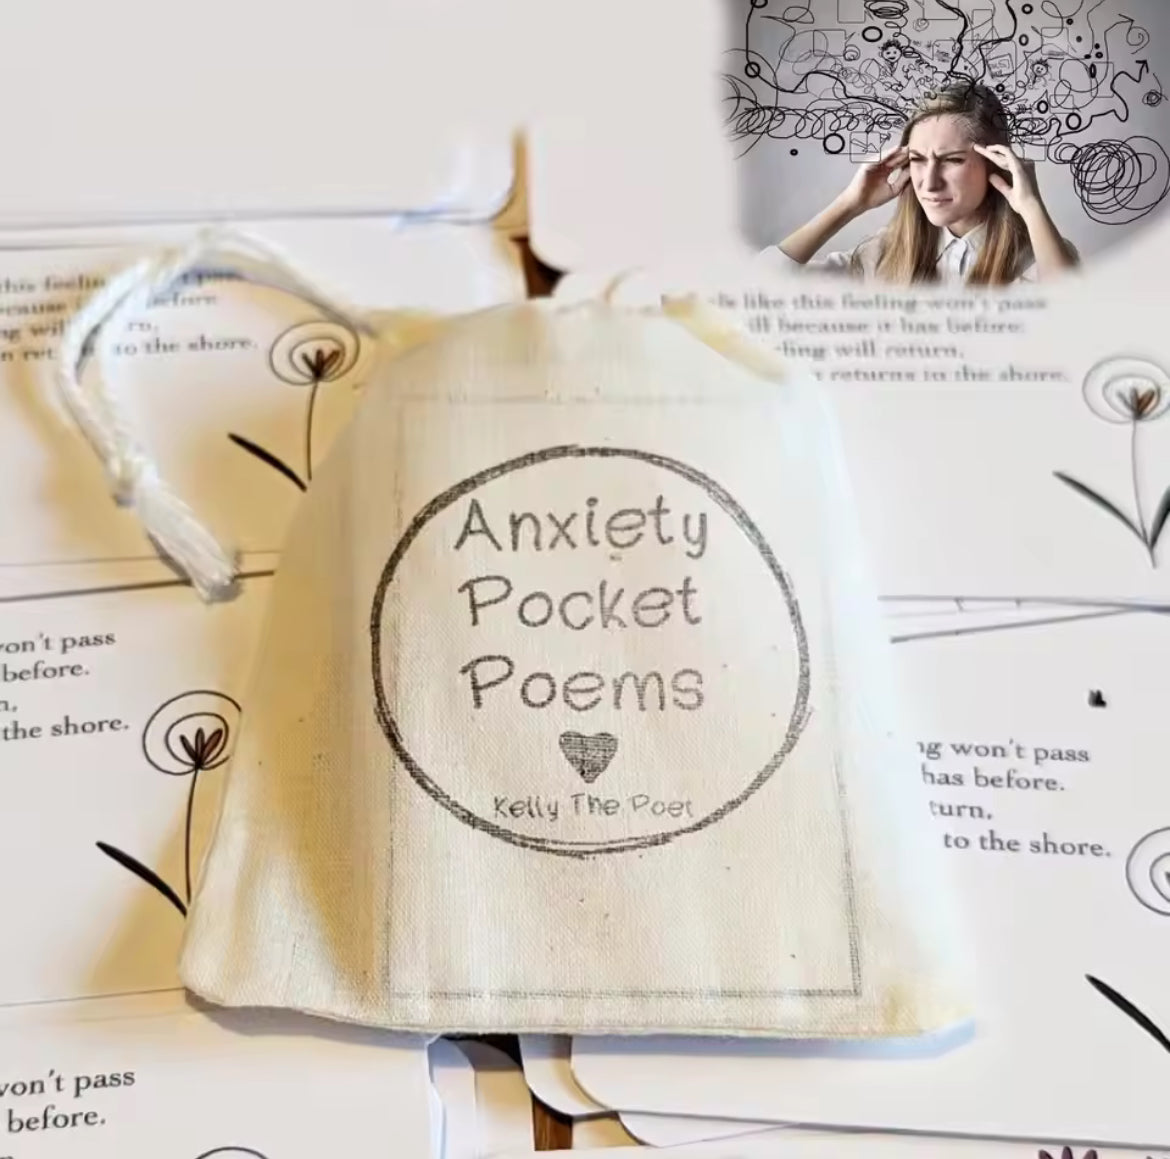 this feelin
ecause
before
ng wil
rn,
to the shore.
like this feeling won't pass
ill because it has before.
ling will return,
returns to the shore.
Anxiety
Pocket
Poems
Kelly The Poet
won't pass
before.
n,
the shore.
ng won't pass
has before.
turn,
to the shore.
won't pass
before.